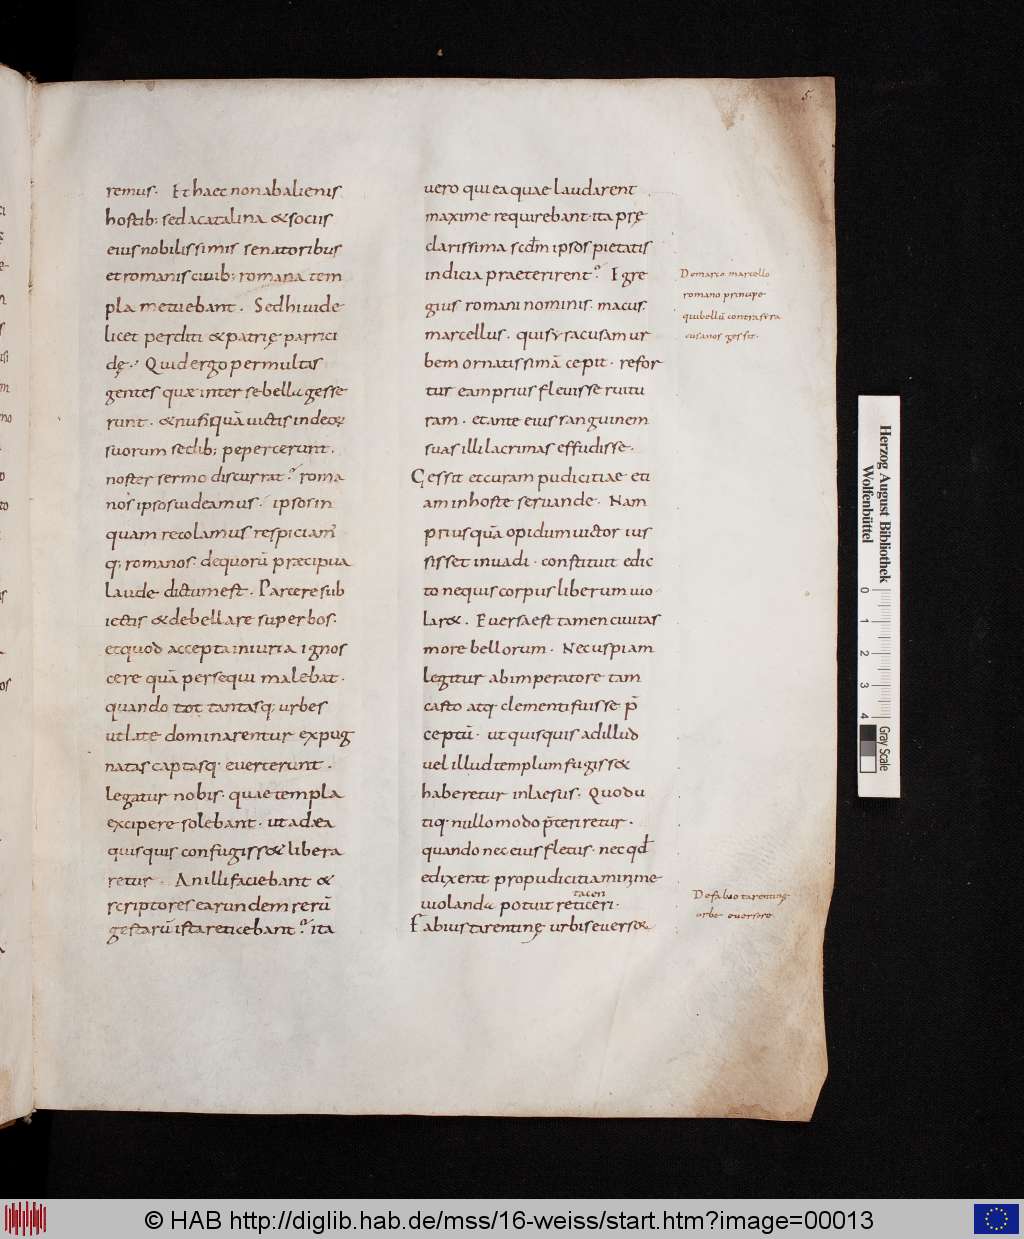 5.
remus. Et haec non ab alienis
hostib; sed a catalina & sociis
eius nobilissimis senatoribus
et romanis ciuib; romana tem
pla metuebant. Sed hi uide
licet perditi & patrię parrici
dę. Quid ergo per multas
gentes quae inter se bella gesse
runt. & nusquā uictis in deorum
suorum sedib; pepercerunt.
noster sermo discurrat? roma
nos ipsos uideamus. ipsos in
quam recolamus respiciam
q; romanos. de quorū praecipua
laude dictum est. Parcere sub
iectis & debellare superbos.
et quod accepta iniuria ignos
cere quā persequi malebat.
quando tot tantasq; urbes
ut late dominarentur expug
natas captasq; euerterunt.
legatur nobis. quae templa
excipere solebant. ut ad ea
quisquis confugiss& libera
retur. An illi faciebant &
scriptores earundem rerū
gestarū ista reticebant? ita
uero qui ea quae laudarent
maxime requirebant. ita prę
clarissima scdm ipsos pietatis
indicia praeterirent? Egre
gius romani nominis. macus.
marcellus. qui syracusam ur
bem ornatissimā cepit. refor
tur eam prius fleuisse ruitu
ram. et ante eius sanguinem
suas illi lacrimas effudisse.
Gessit et curam pudicitiae eti
am in hoste seruande. Nam
prius quā opidum uictor ius
sisset inuadi. constituit edic
to ne quis corpus liberum uio
lar&. Euersa est tamen ciuitas
more bellorum. Nec uspiam
legitur ab imperatore tam
casto atq; clementi fuisse p̄
ceptū. ut quisquis ad illud
uel illud templum fugiss&
haberetur inlaesus. Quod u
tiq; nullo modo p̄teriretur.
quando nec eius fletus. nec qđ
edixerat pro pudicitia minime
uiolanda potuit reticeri.
tacen
Fabius tarentinę urbis euersor
De marco marcello
romano principe
qui bellū contra syra
cusanos gessit.
De fabio tarentinę
urbe euersore
Herzog August Bibliothek
Wolfenbüttel
0 1 2 3 4
Gray Scale
© HAB http://diglib.hab.de/mss/16-weiss/start.htm?image=00013